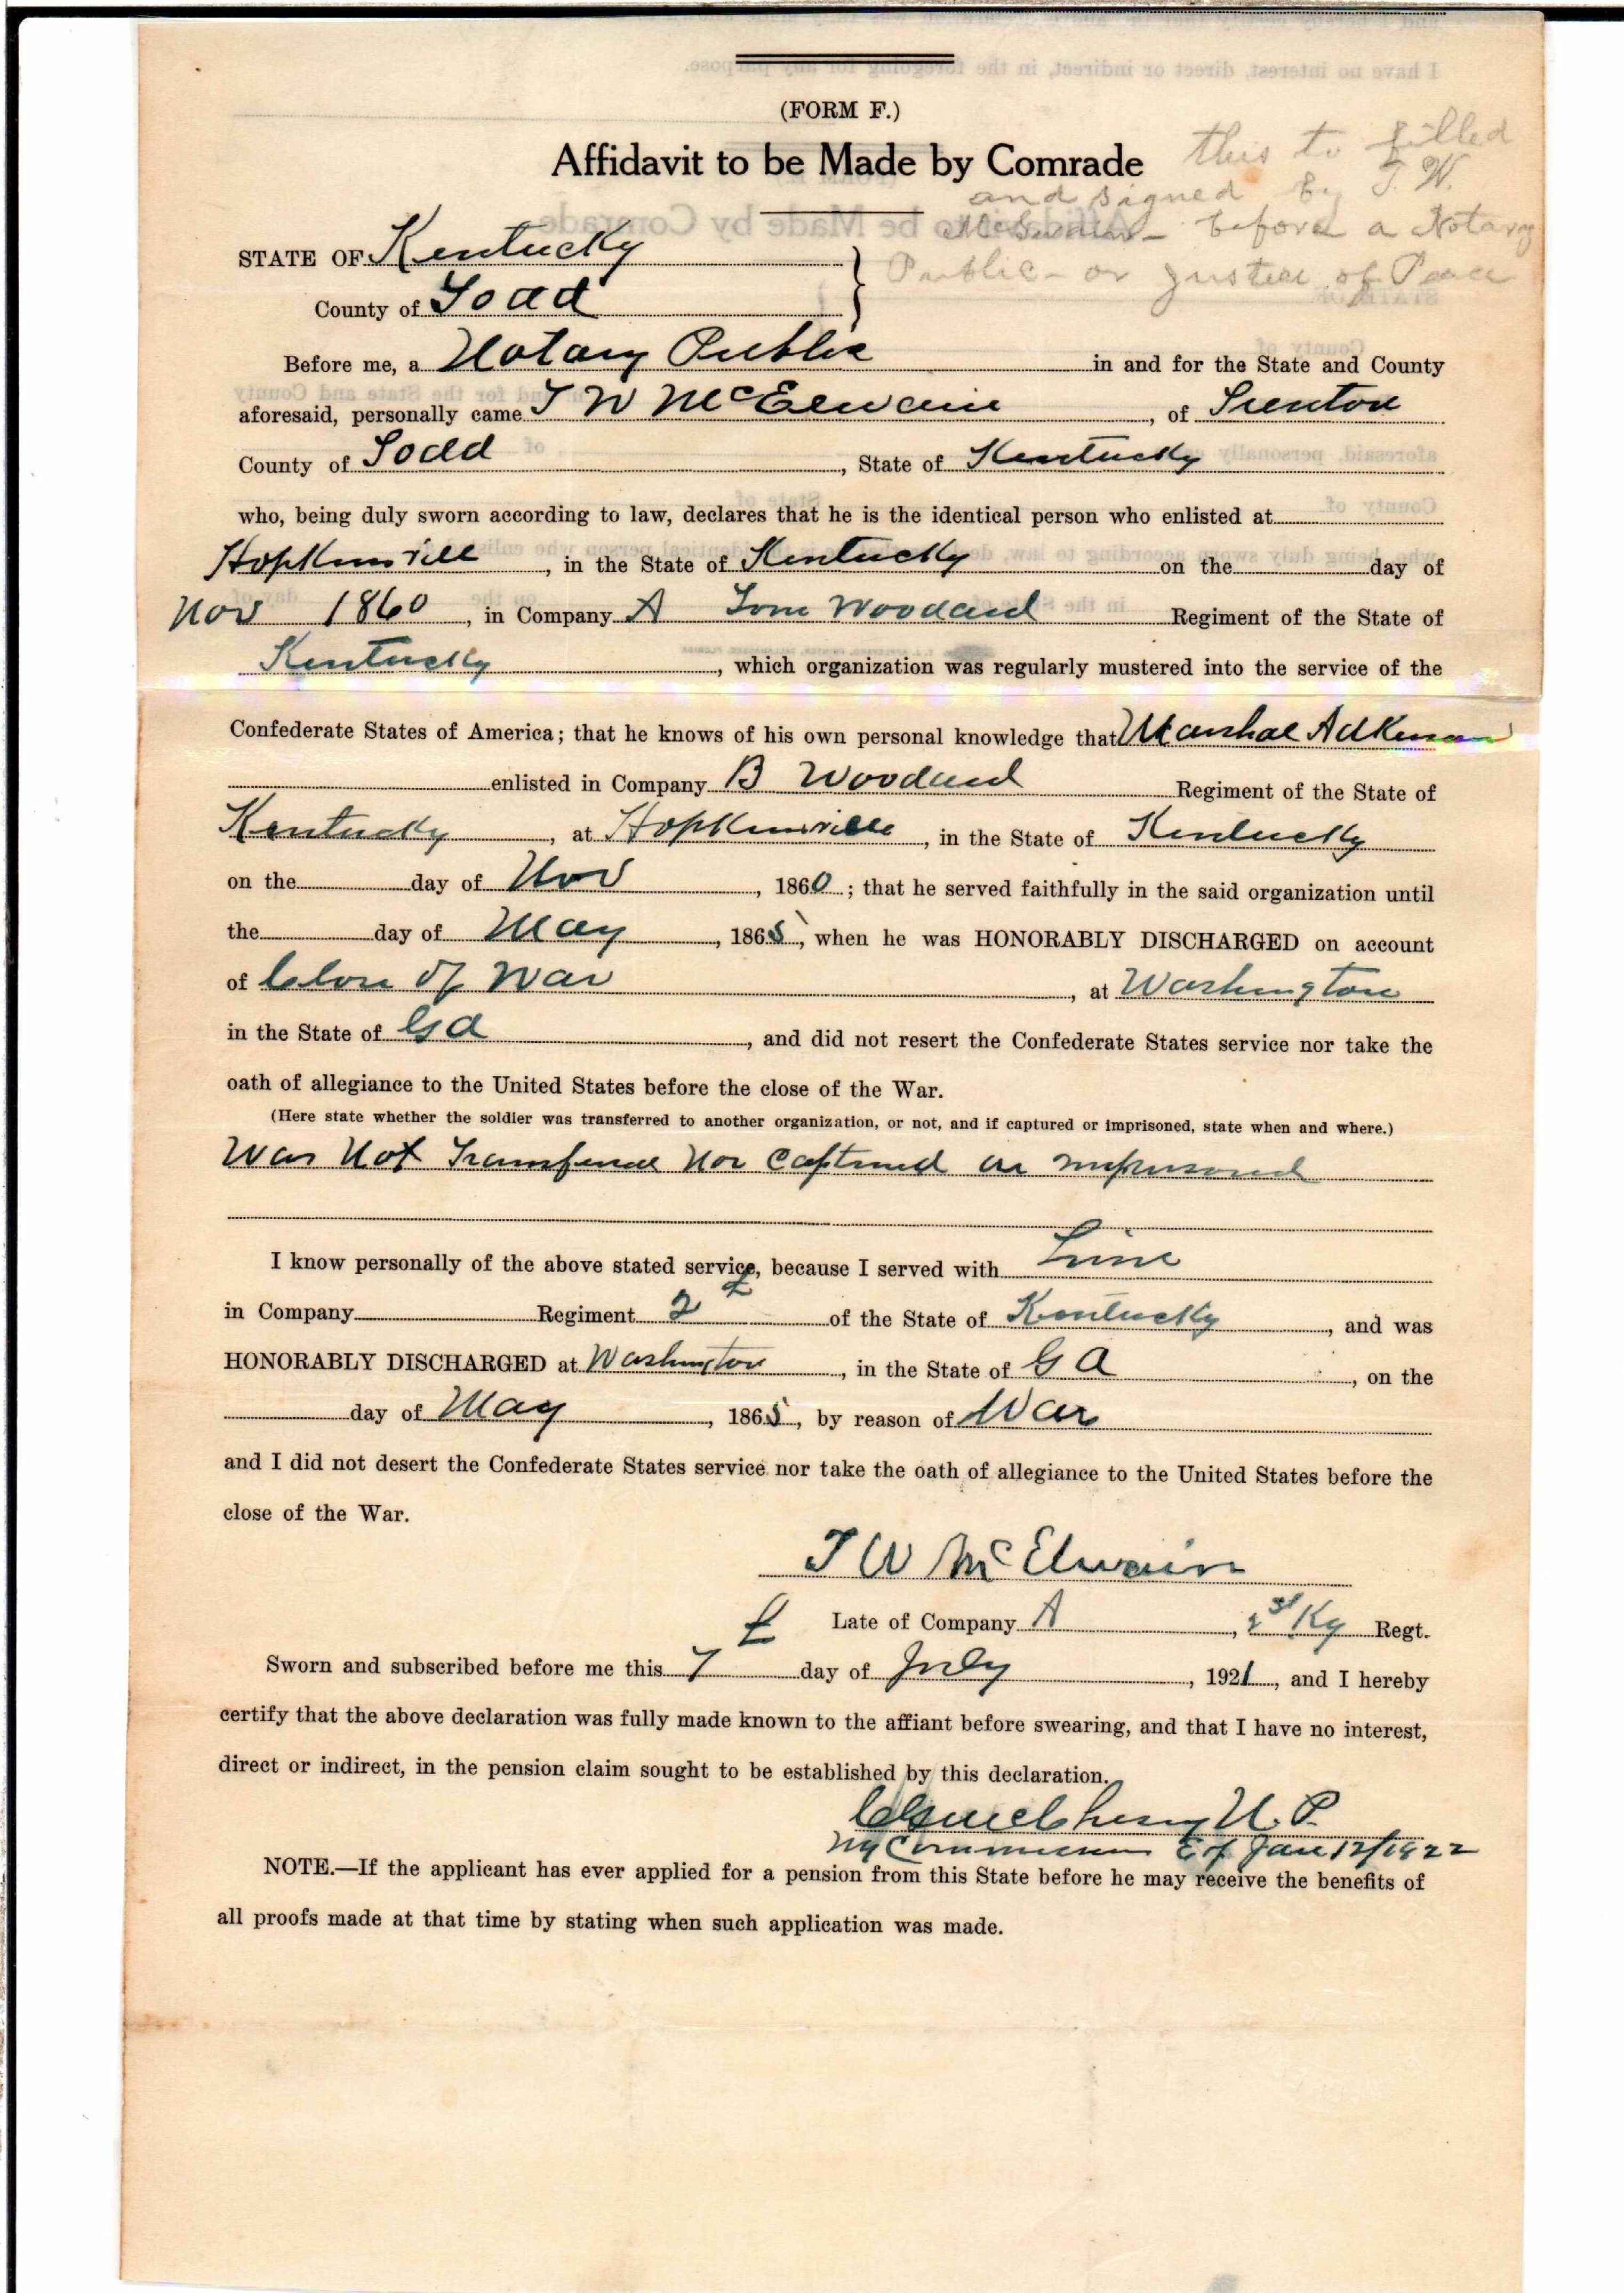 (FORM F.)
Affidavit to be Made by Comrade
this to filled
and signed by T. W.
before a Notary
Public - or Justice of Peace
STATE OF Kentucky
County of Todd
Before me, a Notary Public in and for the State and County
aforesaid, personally came T W McElwain, of Trenton
County of Todd, State of Kentucky
who, being duly sworn according to law, declares that he is the identical person who enlisted at
Hopkinsville, in the State of Kentucky on the day of
Nov 1860, in Company A Tom Woodard Regiment of the State of
Kentucky, which organization was regularly mustered into the service of the
Confederate States of America; that he knows of his own personal knowledge that Marshal Adkinson
enlisted in Company B Woodard Regiment of the State of
Kentucky, at Hopkinsville, in the State of Kentucky
on the day of Nov, 1860; that he served faithfully in the said organization until
the day of May, 1865, when he was HONORABLY DISCHARGED on account
of Close of War, at Washington
in the State of Ga, and did not resert the Confederate States service nor take the
oath of allegiance to the United States before the close of the War.
(Here state whether the soldier was transferred to another organization, or not, and if captured or imprisoned, state when and where.)
Was Not Transfered Nor Captured or imprisoned
I know personally of the above stated service, because I served with him
in Company Regiment 2 of the State of Kentucky, and was
HONORABLY DISCHARGED at Washington, in the State of GA, on the
day of May, 1865, by reason of War
and I did not desert the Confederate States service nor take the oath of allegiance to the United States before the
close of the War.
T W McElwain
Late of Company A, Ky Regt.
Sworn and subscribed before me this 7 day of July, 1921, and I hereby
certify that the above declaration was fully made known to the affiant before swearing, and that I have no interest,
direct or indirect, in the pension claim sought to be established by this declaration.
N. P.
My Commission Ex Jan 12/1922
NOTE.—If the applicant has ever applied for a pension from this State before he may receive the benefits of
all proofs made at that time by stating when such application was made.